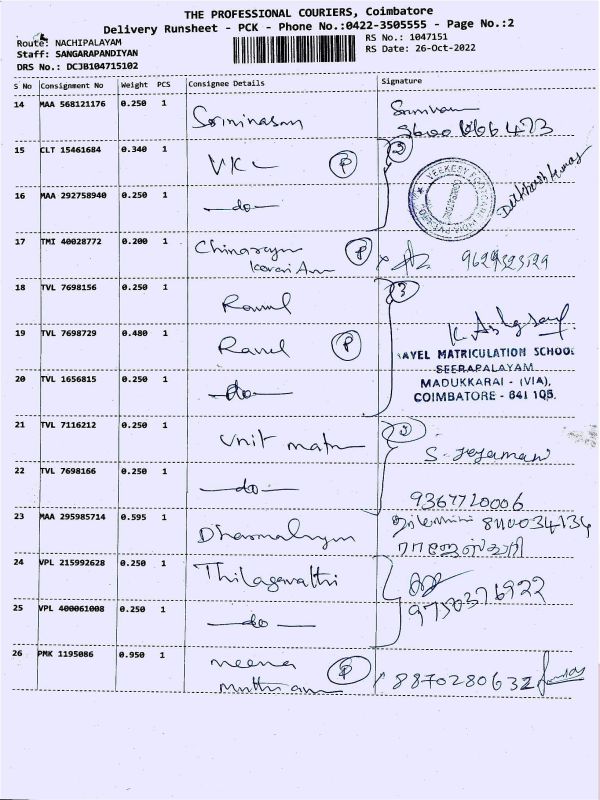 THE PROFESSIONAL COURIERS, Coimbatore
Delivery Runsheet - PCK - Phone No.:0422-3505555 - Page No.:2
Route: NACHIPALAYAM
RS No.: 1047151
Staff: SANGARAPANDIYAN
RS Date: 26-Oct-2022
DRS No.: DCJB104715102
S No Consignment No Weight PCS Consignee Details Signature
14 MAA 568121176 0.250 1
15 CLT 15461684 0.340 1 VKC P 2
16 MAA 292758940 0.250 1 -do-
17 TMI 40028772 0.200 1 P
18 TVL 7698156 0.250 1 3
19 TVL 7698729 0.480 1 P
AVEL MATRICULATION SCHOOL
SEERAPALAYAM
20 TVL 1656815 0.250 1 -do-
MADUKKARAI - (VIA),
COIMBATORE - 641 105.
21 TVL 7116212 0.250 1 Unit
S. Jejaman
22 TVL 7698166 0.250 1 -do-
9367720006
23 MAA 295985714 0.595 1
24 VPL 215992628 0.250 1 Thilagavathi
9750376922
25 VPL 400061008 0.250 1 -do-
26 PMK 1195086 0.950 1 meena P
8870280632